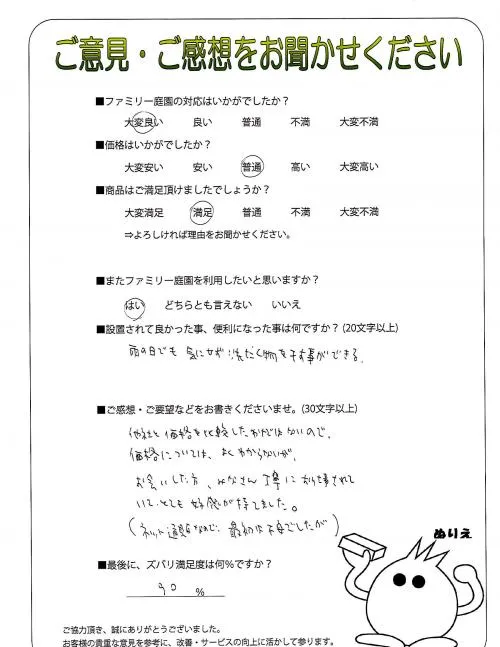 ご意見・ご感想をお聞かせください
■ファミリー庭園の対応はいかがでしたか？
大変良い 良い 普通 不満 大変不満
■価格はいかがでしたか？
大変安い 安い 普通 高い 大変高い
■商品はご満足頂けましたでしょうか？
大変満足 満足 普通 不満 大変不満
⇒よろしければ理由をお聞かせください。
■またファミリー庭園を利用したいと思いますか？
はい どちらとも言えない いいえ
■設置されて良かった事、便利になった事は何ですか？(20文字以上)
雨の日でも 気にせず 洗たく物を干す事ができる。
■ご感想・ご要望などをお書きくださいませ。(30文字以上)
他社と価格を比較したわけではないので、
価格については、よくわからないが、
お会いした方、みなさん 丁寧に お仕事されて
いて とても 好感が持てました。
(ネット通販なので、最初は不安でしたが)
ぬりえ
■最後に、ズバリ満足度は何％ですか？
90 %
ご協力頂き、誠にありがとうございました。
お客様の貴重な意見を参考に、改善・サービスの向上に活かして参ります。